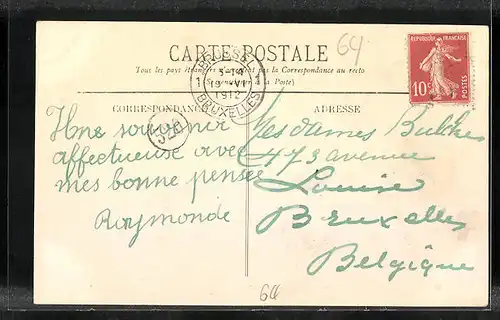 64
CARTE POSTALE
Tous les pays étrangers n'acceptent pas la Correspondance au recto
(Se renseigner à la Poste)
BRUXELLES
1912
BRUXELLES
REPUBLIQUE FRANCAISE
10c
CORRESPONDANCE
Une souvenir
affectueuse avec
mes bonne pensée
Raymonde
ADRESSE
Mesdames Bulcke
473 avenue
Louise
Bruxelles
Belgique
64